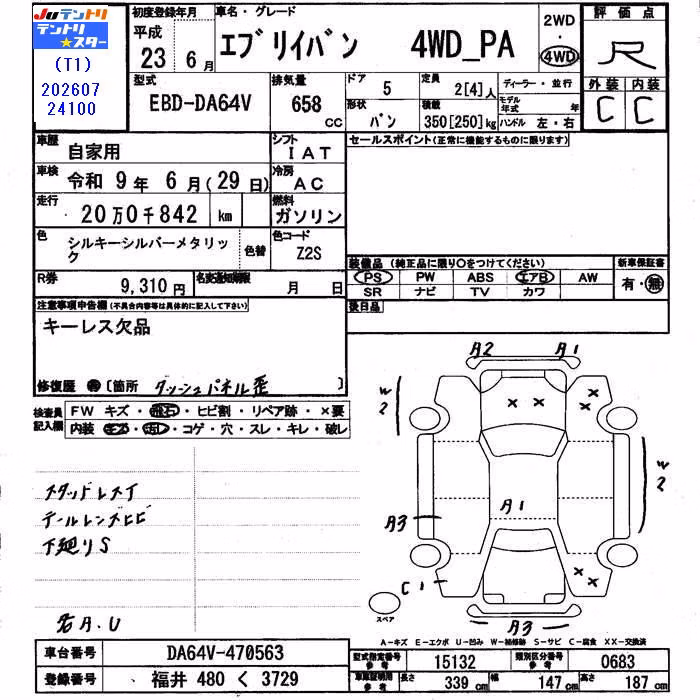 Juテントリ
テントリ★スター
(T1)
202607
24100
初度登録年月
平成
23 6 月
車名・グレード
エブリイバン 4WD_PA
2WD
・
4WD
評価点
R
外装 内装
C C
型式
EBD-DA64V
排気量
658
CC
ドア
5
定員
2[4]人
ディーラー・並行
形状
バン
積載
350[250]kg
モデル年式 年
ハンドル 左・右
車歴
自家用
シフト
IAT
セールスポイント(正常に機能するものに限ります)
車検
令和 9 年 6 月(29 日)
冷房
AC
走行
20 万 0 千 842 km
燃料
ガソリン
色
シルキーシルバーメタリック
色替
色コード
Z2S
装備品(純正品に限り○をつけてください)
PS PW ABS エアB AW
SR ナビ TV カワ
新車保証書
有・無
R券
9,310 円
名変通知期限
月 日
後日品
注意事項申告欄(不具合内容等は具体的に記入して下さい)
キーレス欠品
修復歴 有 〔箇所 ダッシュパネル歪 〕
検査員記入欄
FW キズ・飛石・ヒビ割・リペア跡・×要
内装 キズ・汚レ・コゲ・穴・スレ・キレ・破レ
スタッドレスT
テールレンズヒビ
下廻りS
各A.U
A2 A1
W2
W2
A1
A3
C1
A3
スペア
A-キズ E-エクボ U-凹み W-補修跡 S-サビ C-腐食 XX-交換済
車台番号
DA64V-470563
登録番号
福井 480 く 3729
型式指定番号
参考
15132
類別区分番号
参考
0683
車庫証明用
参考
長さ
339 cm
幅
147 cm
高さ
187 cm